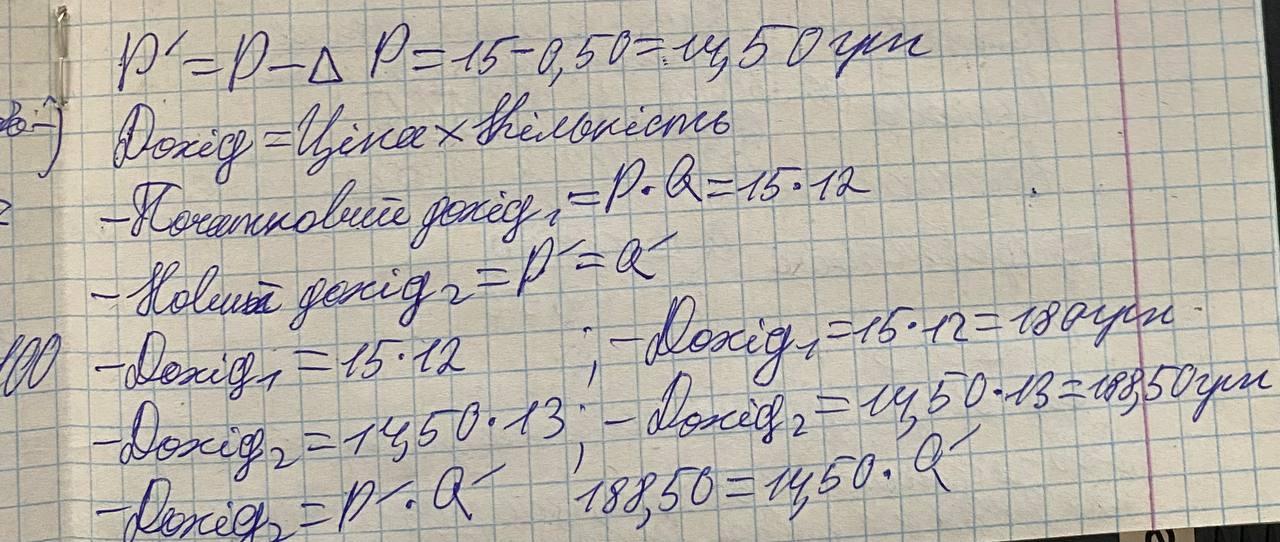 P′ = P – Δ P = 15 – 0,50 = 14,50 грн
Дохід = Ціна × Кількість
– Початковий дохід₁ = P · Q = 15 · 12
– Новий дохід₂ = P′ = Q′
100 – Дохід₁ = 15 · 12 ; – Дохід₁ = 15 · 12 = 180 грн
– Дохід₂ = 14,50 · 13 ; – Дохід₂ = 14,50 · 13 = 188,50 грн
– Дохід₂ = P′ · Q′ 188,50 = 14,50 · Q′